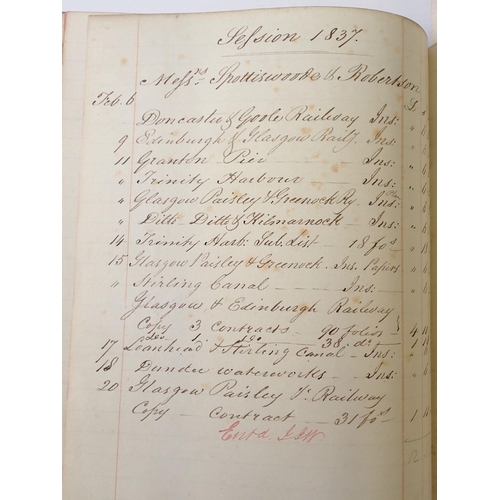 Session 1837.
Messrs. Spottiswoode & Robertson
Feb. 6 £ "
Doncaster & Goole Railway Ins: " 6
9 Edinburgh & Glasgow Railf. Ins: " 6
11 Granton Pier Ins: " 6
" Trinity Harbour Ins: " 6
" Glasgow Paisley & Greenock Ry. Ins: " 6
" Ditto Ditto & Kilmarnock Ins: " 6
14 Trinity Harb. Sub. List 18 fos
15 Glasgow Paisley & Greenock. Ins. Papers " 6
" Stirling Canal Ins: " 6
Glasgow & Edinburgh Railway
Copy 3 contracts 90 folios 4
Do. 1 Do 38 do. 1
17 Loanhead & Stirling Canal Ins: " 6
18 Dundee waterworks Ins: " 6
20 Glasgow Paisley &c Railway
Copy contract 31 fos 1
Entd.